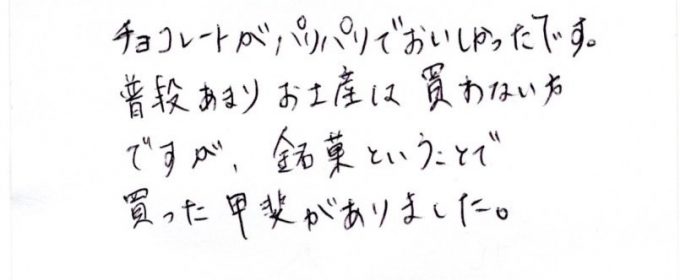 チョコレートがパリパリでおいしかったです。
普段あまりお土産は買わない方
ですが、銘菓ということで
買った甲斐がありました。